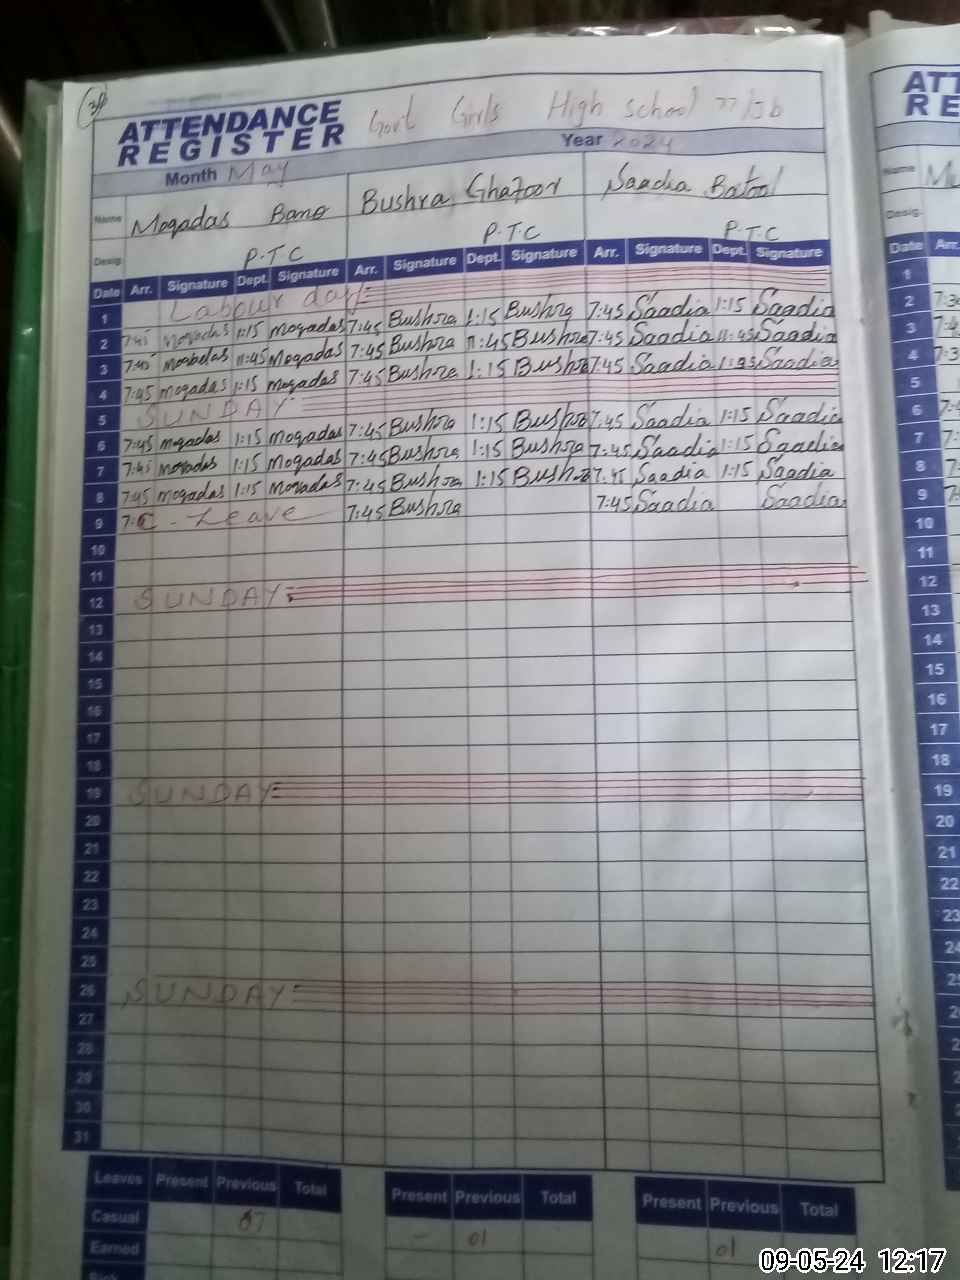 ATTENDANCE REGISTER Govt Girls High School 77/JB
Month May Year 2024
Name Moqadas Bano Bushra Ghafoor Saadia Batool
Desig. P.T.C P.T.C P.T.C
Date Arr. Signature Dept. Signature Arr. Signature Dept. Signature Arr. Signature Dept. Signature
1 Labour day
2 7:45 Moqadas 1:15 Moqadas 7:45 Bushra 1:15 Bushra 7:45 Saadia 1:15 Saadia
3 7:45 11:45 Moqadas 7:45 Bushra 11:45 Bushra 7:45 Saadia 11:45 Saadia
4 7:45 moqadas 1:15 Moqadas 7:45 Bushra 1:15 Bushra 7:45 Saadia Saadia
5 SUNDAY
6 7:45 moqadas 1:15 Moqadas 7:45 Bushra 1:15 Bushra 7:45 Saadia 1:15 Saadia
7 7:45 1:15 Moqadas 7:45 Bushra 1:15 Bushra 7:45 Saadia 1:15 Saadia
8 7:45 moqadas 1:15 Moqadas 7:45 Bushra 1:15 Bushra 7:45 Saadia 1:15 Saadia
9 C - Leave 7:45 Bushra 7:45 Saadia Saadia
10
11
12 SUNDAY
13
14
15
16
17
18
19 SUNDAY
20
21
22
23
24
25
26 SUNDAY
27
28
29
30
31
Leaves Present Previous Total Present Previous Total Present Previous Total
Casual 07 - 01
Earned 01
ATT
RE
Name
Desig.
Date Arr.
1
2
3
4
5
6
7
8
9
10
11
12
13
14
15
16
17
18
19
20
21
22
23
24
25
09-05-24 12:17